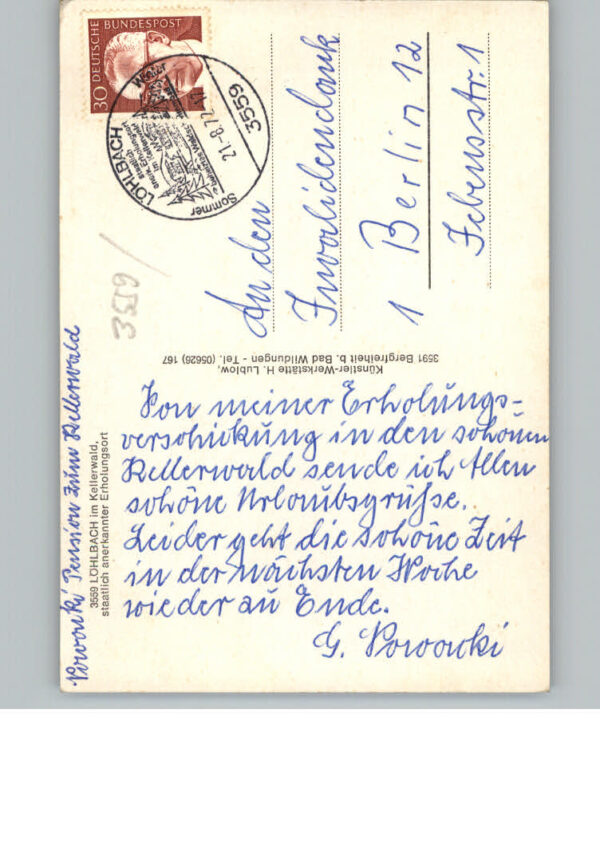 30 DEUTSCHE BUNDESPOST
3559 LOHLBACH
Winter
Sommer
staatlich
anerk. Erholungsort
im Kellerwald
21.-8.72.-17
3559
An den
Invalidendank
1 Berlin 12
Jebensstr. 1
3559/
Künstler-Werkstätte H. Lublow,
3591 Bergfreiheit b. Bad Wildungen - Tel. (05626) 167
Pension zum Kellerwald
3559 LÖHLBACH im Kellerwald,
staatlich anerkannter Erholungsort
Von meiner Erholungs=
verschickung in den schönen
Kellerwald sende ich Allen
schöne Urlaubsgrüße.
Leider geht die schöne Zeit
in der nächsten Woche
wieder zu Ende.
G.